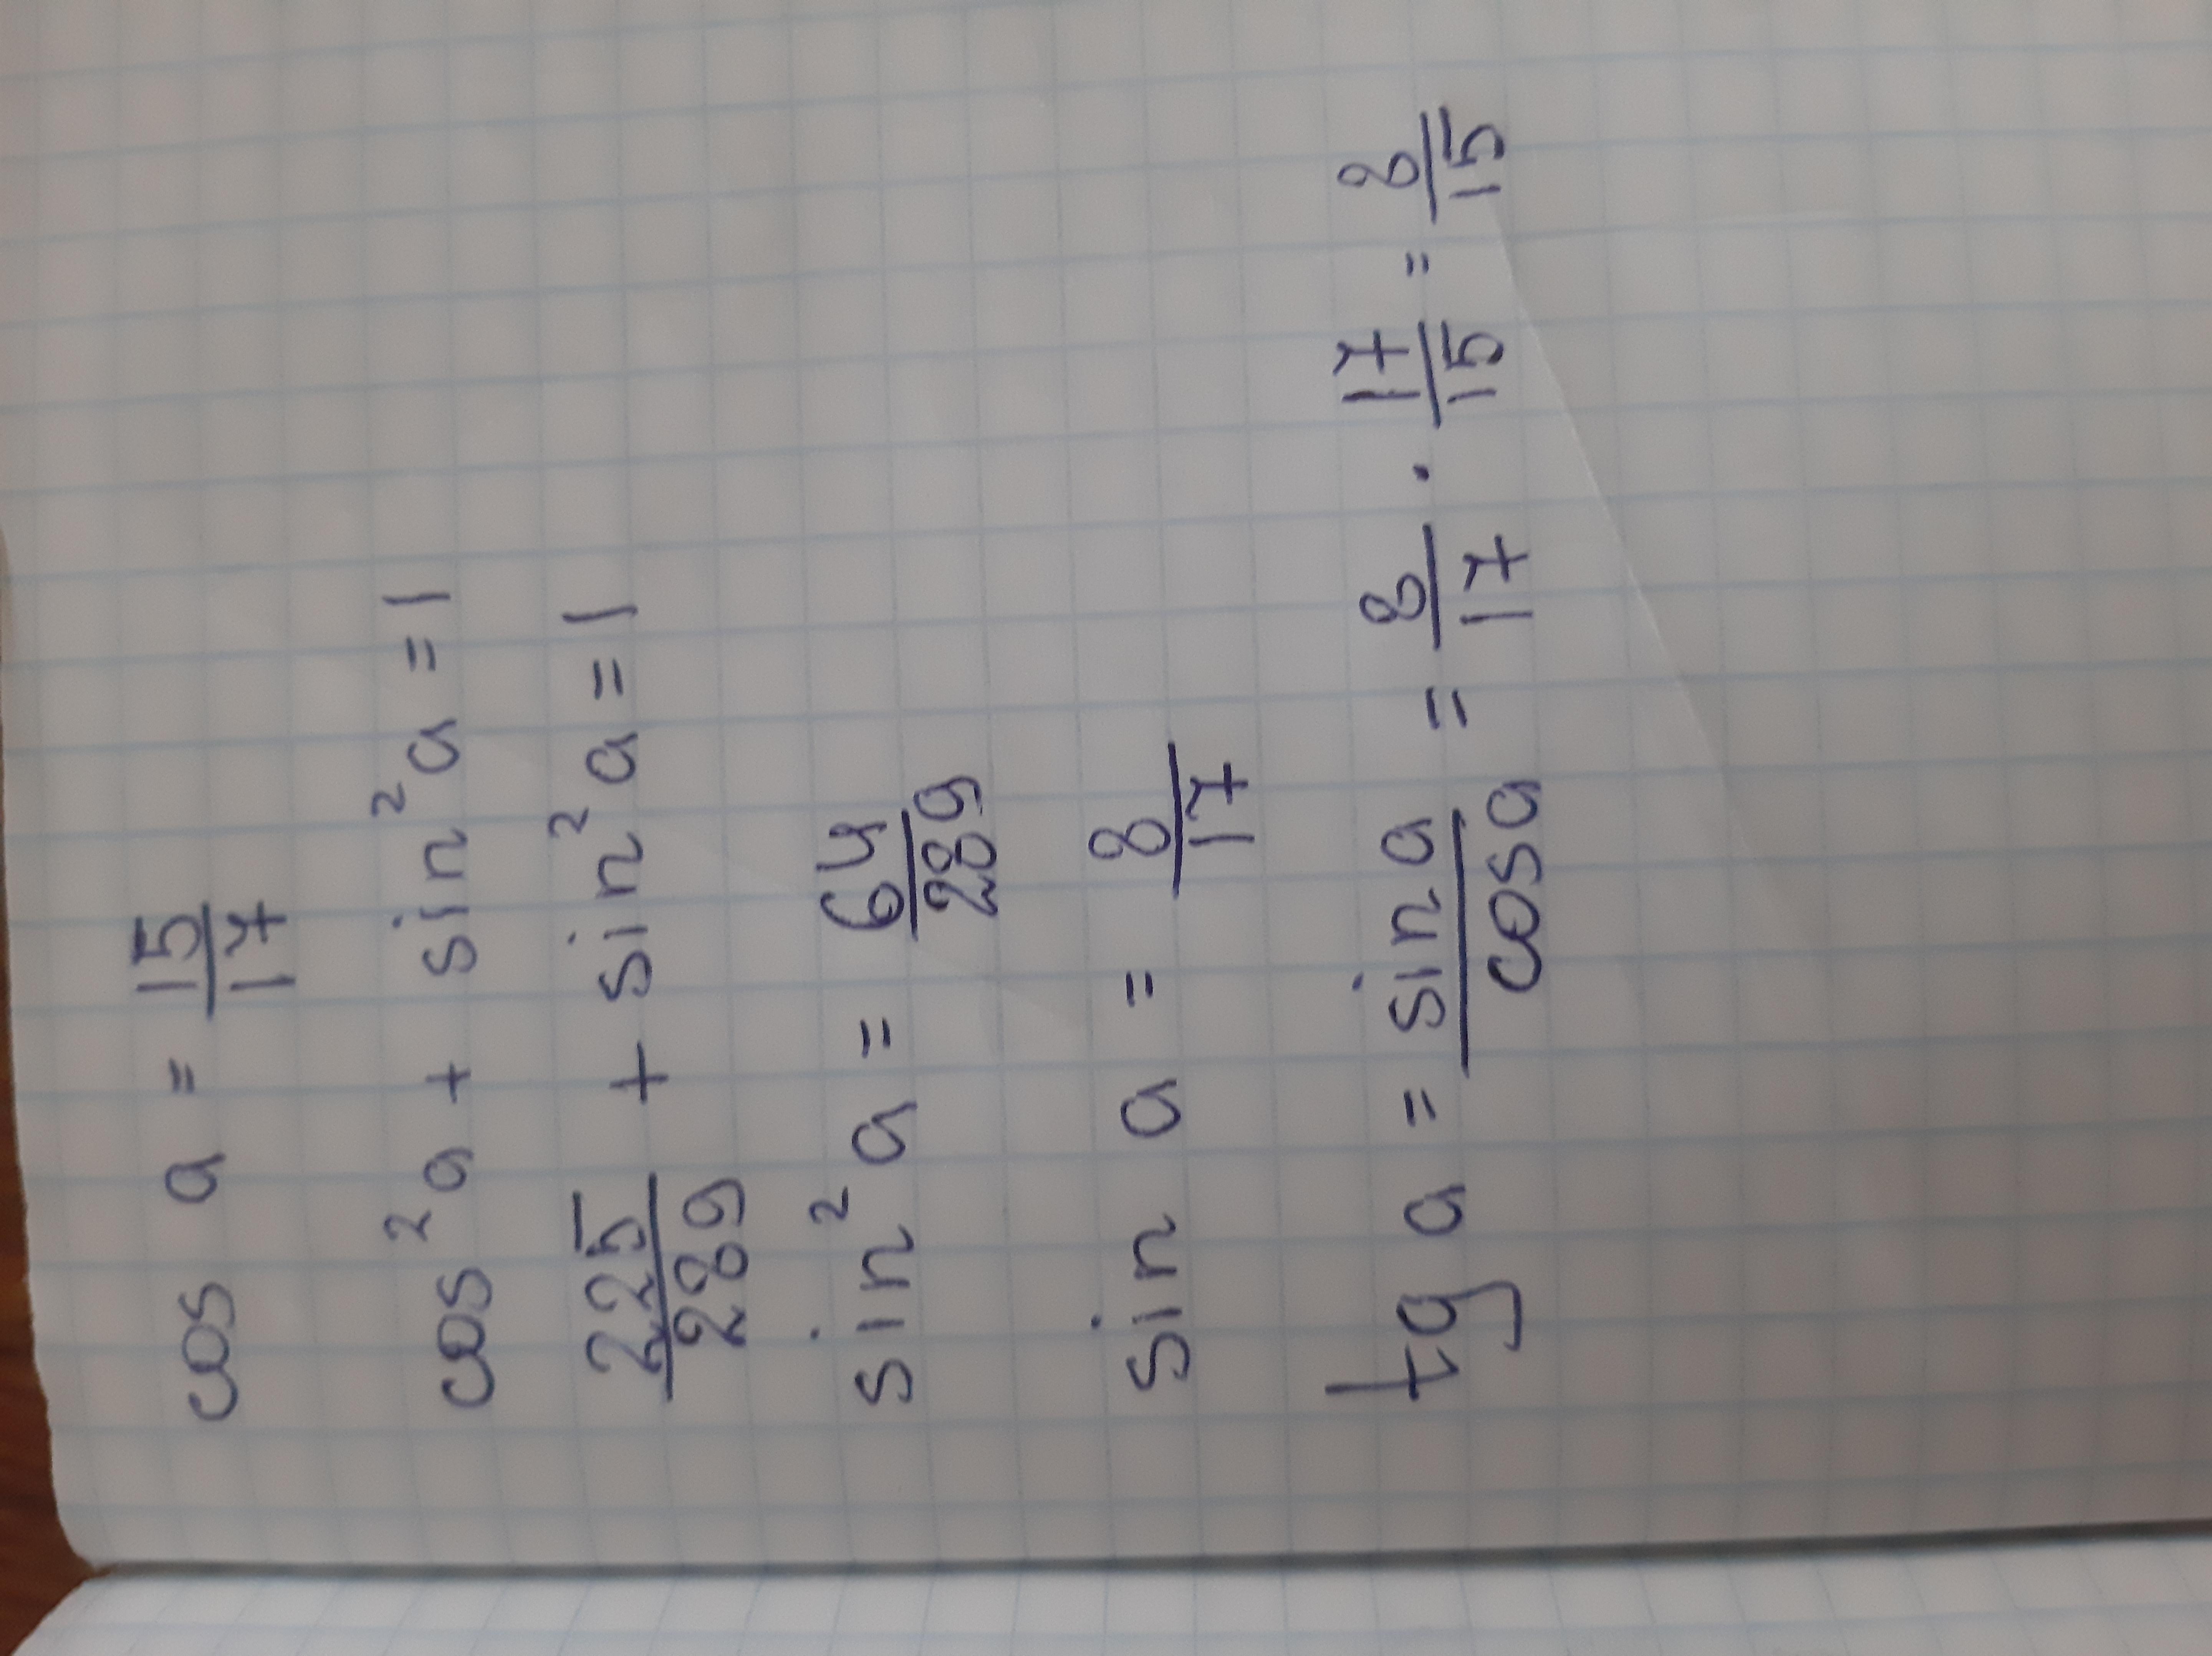 cos a = 15/17
cos² a + sin² a = 1
225/289 + sin² a = 1
sin² a = 64/289
sin a = 8/17
tg a = sin a/cos a = 8/17 · 17/15 = 8/15